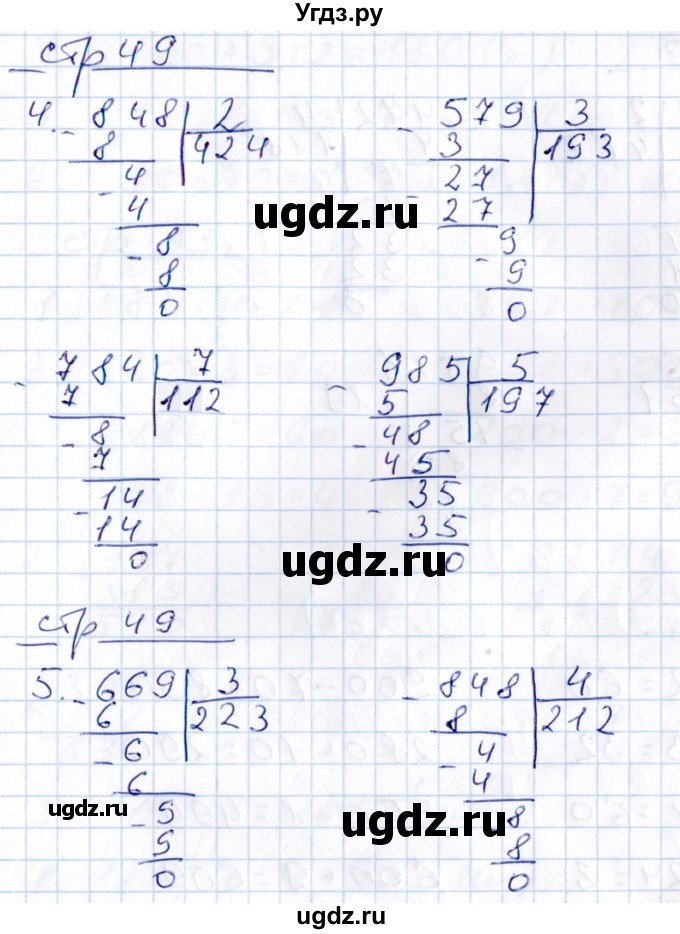 Угдз.ру
стр 49
4. - 848 | 2
8 | 424
- 4
4
- 8
8
0
- 579 | 3
3 | 193
27
27
- 9
9
0
ugdz.ru
- 784 | 7
7 | 112
- 8
7
- 14
14
0
- 985 | 5
5 | 197
- 48
45
- 35
35
0
ugdz.ru
стр 49
5. - 669 | 3
6 | 223
- 6
6
- 9
9
0
ugdz.ru
- 848 | 4
8 | 212
- 4
4
8
8
0
ugdz.ru
ugdz.ru